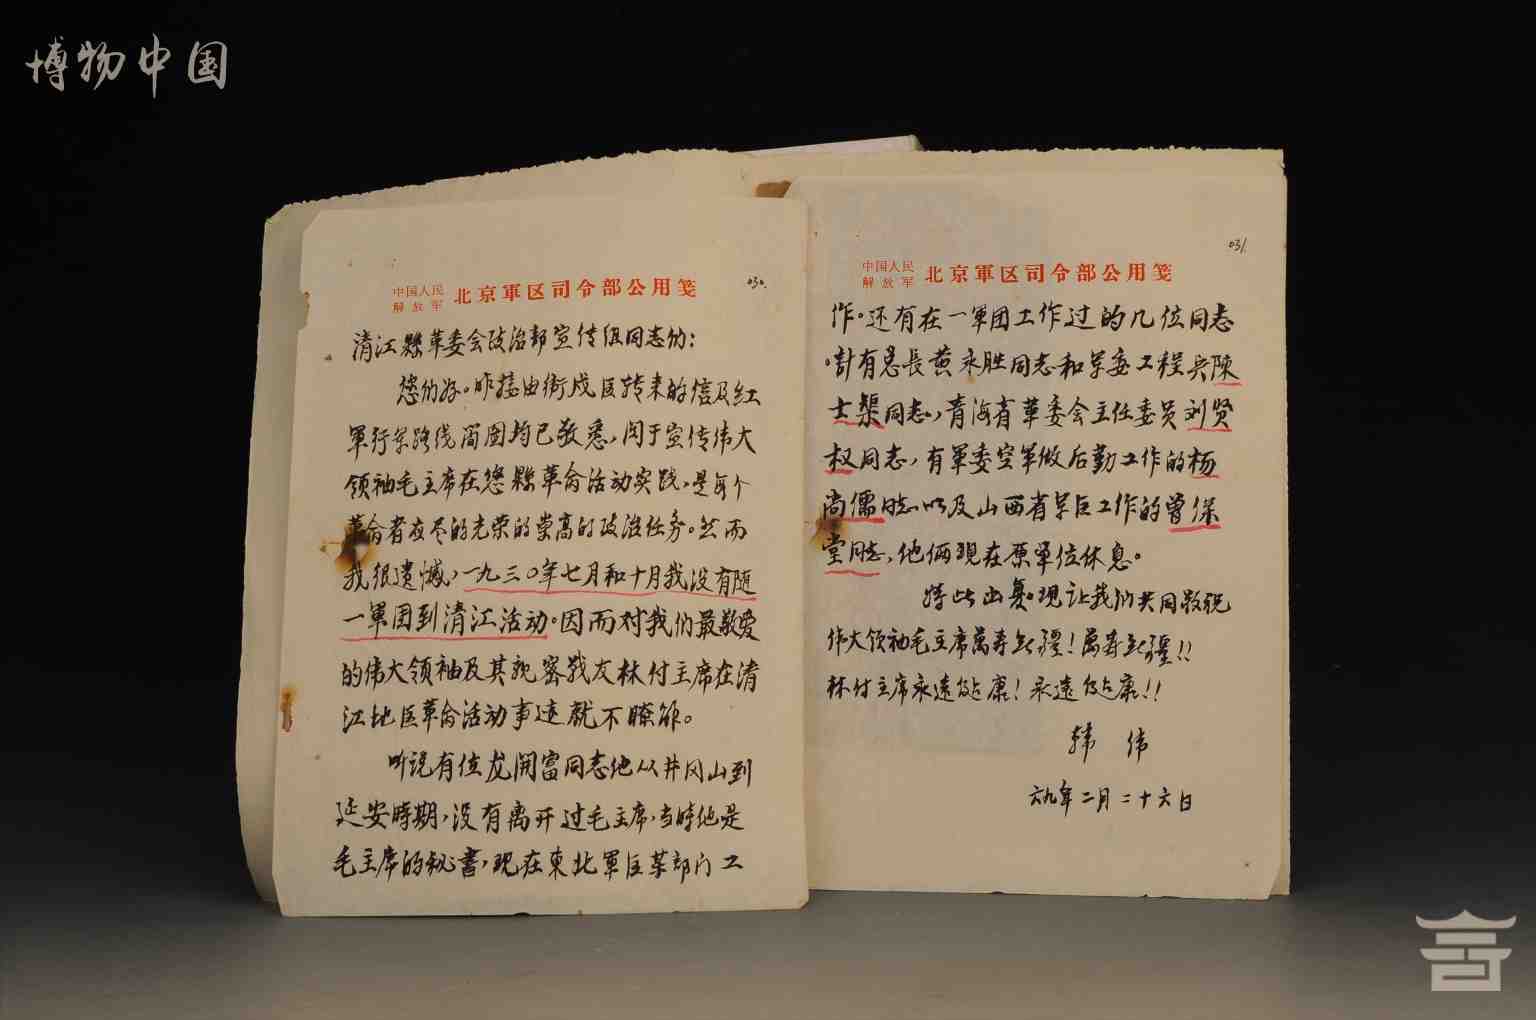 博物中国
中国人民
解放军 北京軍区司令部公用笺
030.
清江縣革委会政治部宣传组同志们：
您们好。昨接由衛戍区转来的信及红
軍行軍路线简图均已敬悉，関于宣传伟大
领袖毛主席在您縣革命活动实践，是每个
革命者应尽的光荣的崇高的政治任务。然而
我很遗憾，一九三〇年七月和十月我没有随
一軍团到清江活动。因而对我们最敬爱
的伟大领袖及其亲密战友林付主席在清
江地区革命活动事迹就不瞭解。
听说有位龙開富同志他从井冈山到
延安時期，没有离开过毛主席，当時他是
毛主席的秘書，现在東北軍区某部门工
031.
中国人民
解放军 北京軍区司令部公用笺
作。还有在一軍团工作过的几位同志
。計有总長黄永胜同志和軍委工程兵陳
士榘同志，青海省革委会主任委员刘贤
权同志，有軍委空軍做后勤工作的杨
尚儒同志以及山西省軍区工作的曾保
堂同志，他俩现在原单位休息。
特此函复。现让我们共同敬祝
伟大领袖毛主席萬寿无疆！萬寿无疆！！
林付主席永遠健康！永遠健康！！
韩 伟
六九年二月二十六日